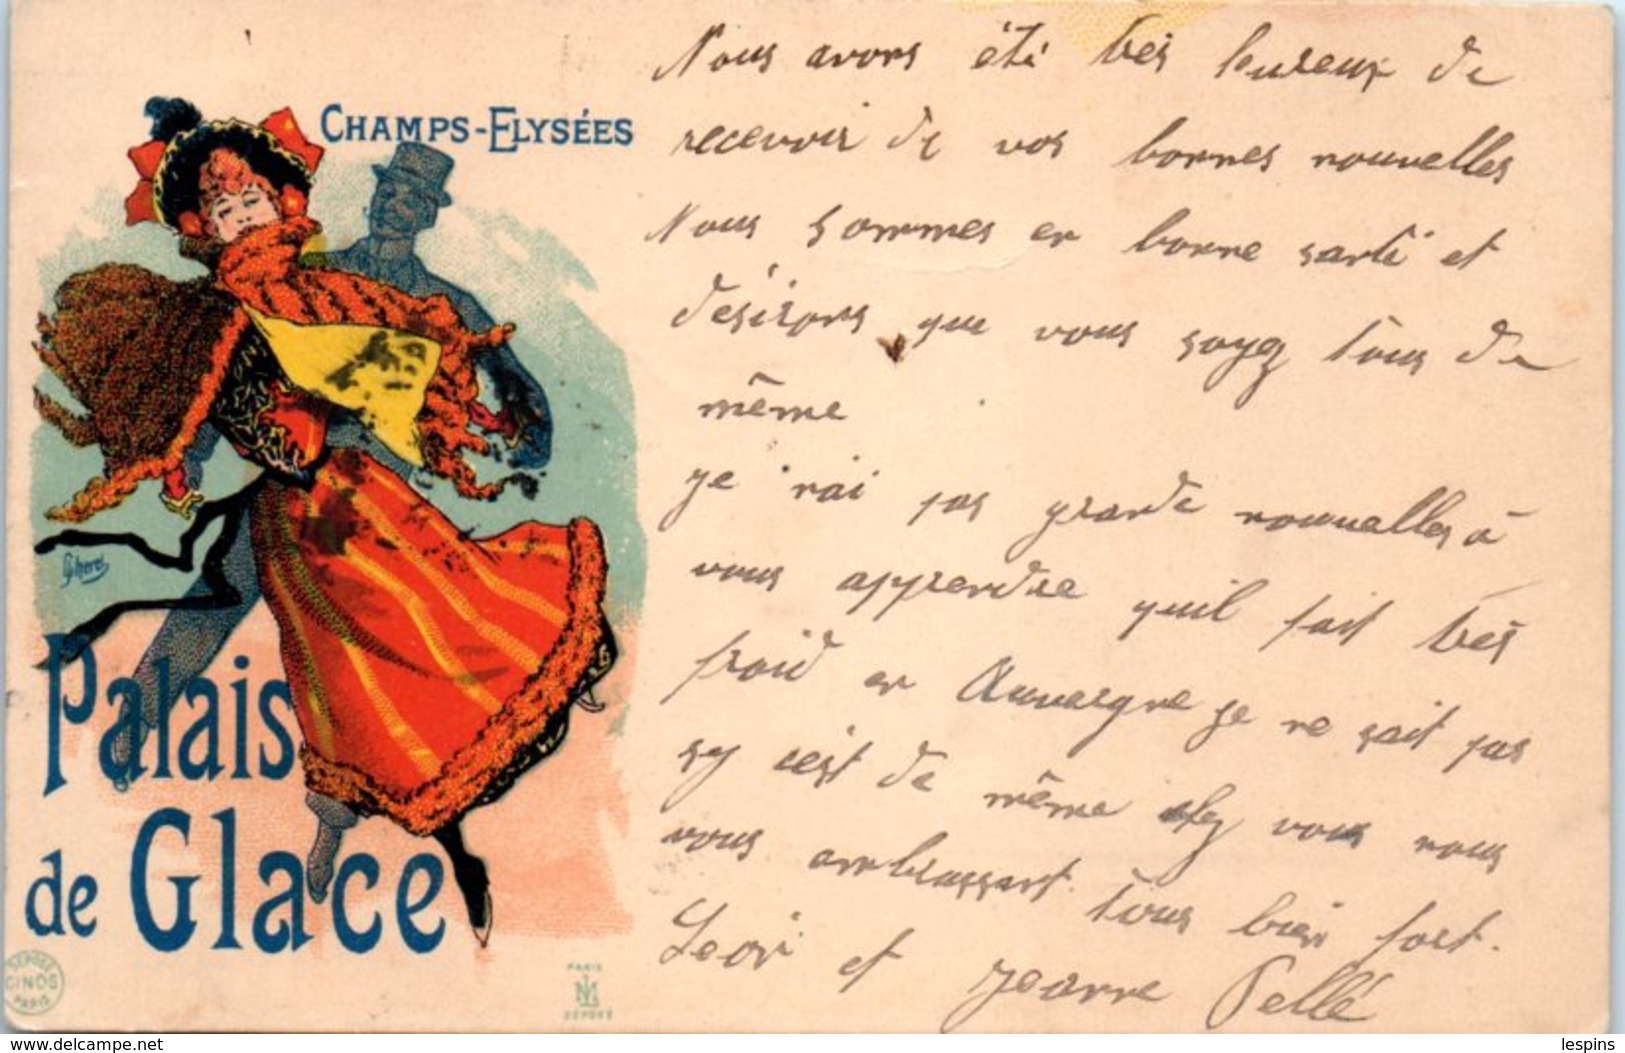 CHAMPS-ELYSÉES
Palais
de Glace
Cheret
DÉPOSÉ
CINOS
PARIS
PARIS
ML
DÉPOSÉ
Nous avons été tres heureux de
recevoir de vos bonnes nouvelles
Nous sommes en bonne santé et
désirons que vous soyez tous de
même
je n'ai pas grande nouvelles à
vous apprendre quil fait tres
froid en Auvergne je ne sait pas
sy cest de même chez vous nous
vous embrassont tous bien fort.
Leon et Jeanne Pellé
delcampe.net
lespins